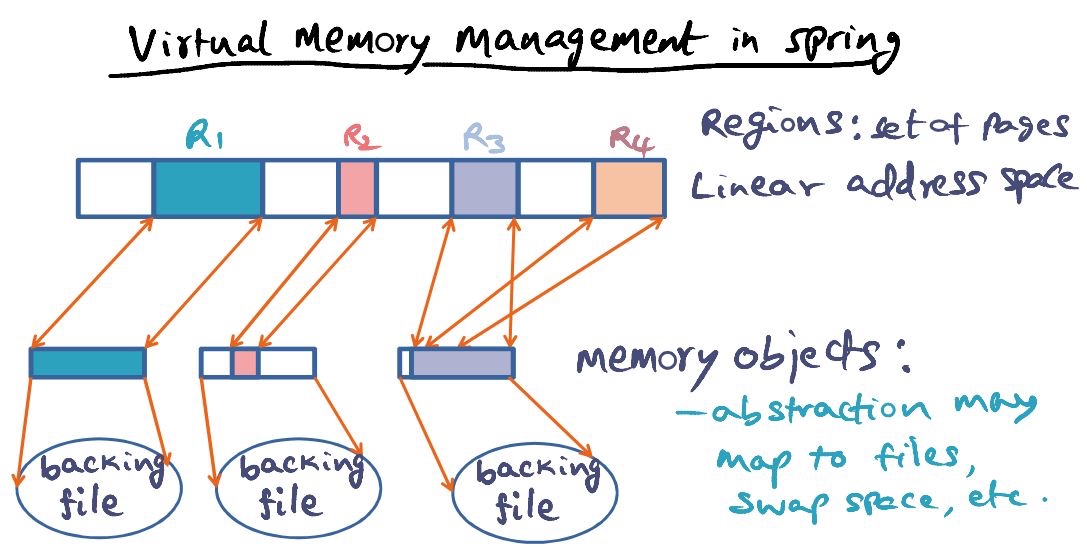 Virtual Memory Management in spring
R1 R2 R3 R4
Regions: set of pages
Linear address space
Memory objects:
- abstraction may
map to files,
swap space, etc.
backing
file
backing
file
backing
file